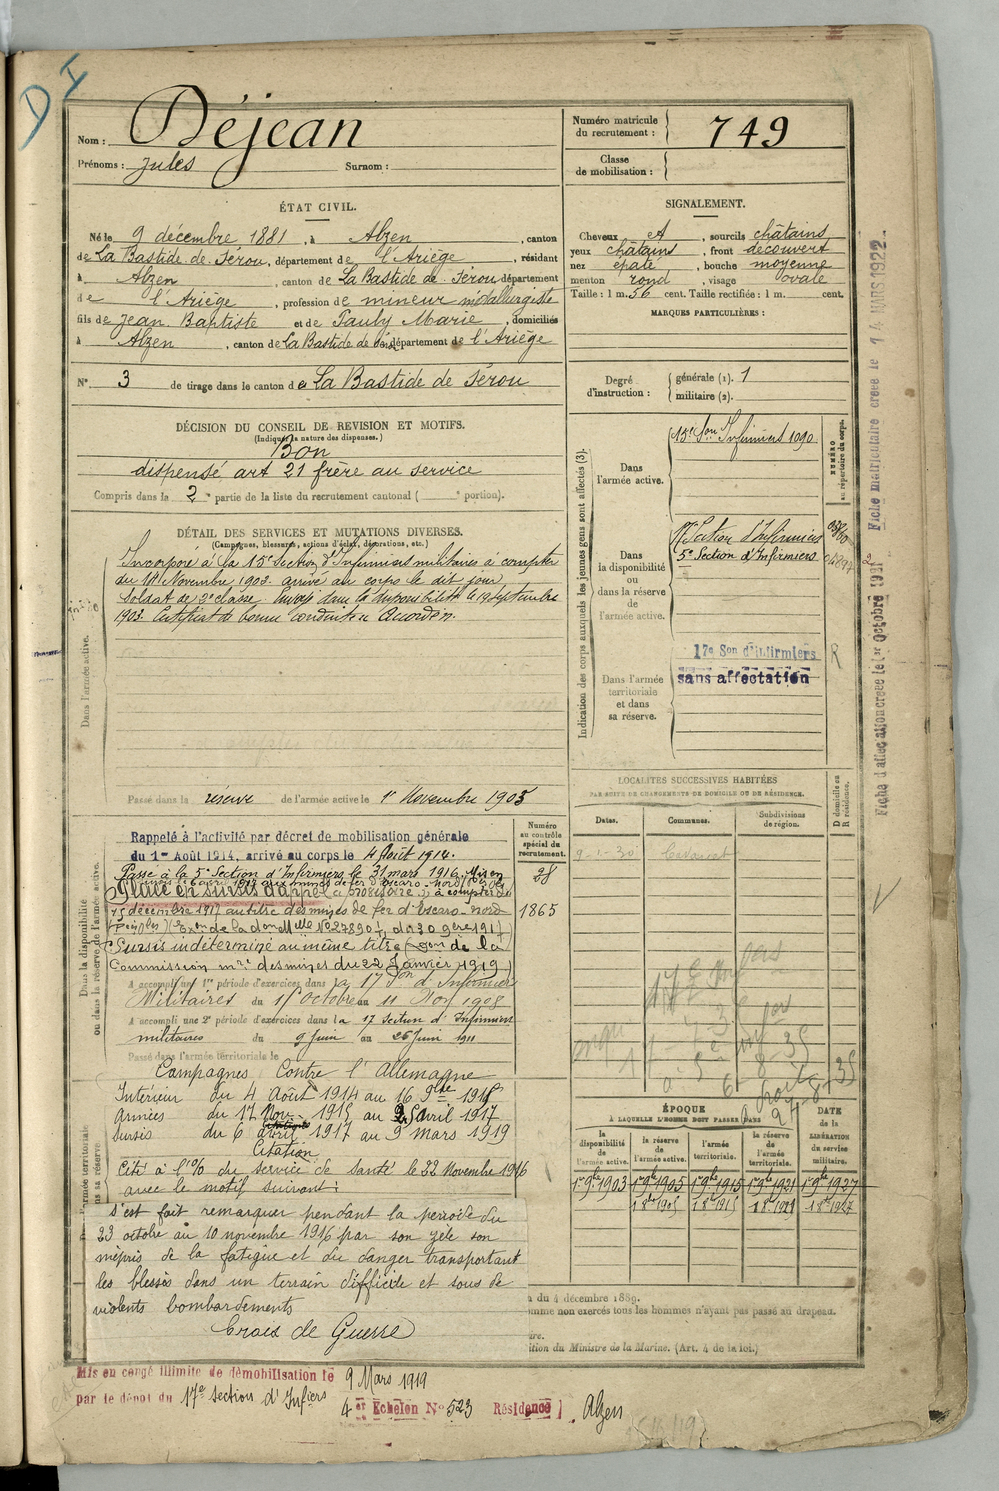 D I
Nom : Déjean
Prénoms : Jules Surnom :
Numéro matricule du recrutement : 749
Classe de mobilisation :
ÉTAT CIVIL.
Né le 9 décembre 1881, à Alzen, canton
de La Bastide de Sérou, département de l'Ariège, résidant
à Alzen, canton de La Bastide de Sérou, département
de l'Ariège, profession de mineur métallurgiste
fils de Jean Baptiste et de Pauly Marie, domiciliés
à Alzen, canton de La Bastide de Sérou, département de l'Ariège
N° 3 de tirage dans le canton de La Bastide de Sérou
SIGNALEMENT.
Cheveux et, sourcils châtains
yeux châtains, front découvert
nez épaté, bouche moyenne
menton rond, visage ovale
Taille : 1 m. 56 cent. Taille rectifiée : 1 m. cent.
MARQUES PARTICULIÈRES :
Degré d'instruction : générale (1). 1
militaire (2).
DÉCISION DU CONSEIL DE REVISION ET MOTIFS.
(Indiquer la nature des dispenses.)
Bon
dispensé art 21 frère au service
Compris dans la 2e partie de la liste du recrutement cantonal ( e portion).
DÉTAIL DES SERVICES ET MUTATIONS DIVERSES.
(Campagnes, blessures, actions d'éclat, décorations, etc.)
Incorporé à la 15e section d'Infirmiers militaires à compter
du Novembre 1902 arrivé au corps le dit jour
Soldat de 2e classe. Envoyé dans la disponibilité le 19 septembre
1903. Certificat de bonne conduite Accordé.
Dans l'armée active.
Passé dans la réserve de l'armée active le 1er Novembre 1905
Indication des corps auxquels les jeunes gens sont affectés (3).
Dans l'armée active.
15e Son Infirmiers 1090
NUMÉRO au répertoire du corps.
Dans la disponibilité ou dans la réserve de l'armée active.
17e Section d'Infirmiers
5e Section d'Infirmiers
Dans l'armée territoriale et dans sa réserve.
17e Son d'Infirmiers R
sans affectation
Fiche matriculaire créée le 14 MARS 1922
Fiche d'affectation créée le 1er Octobre 1921
LOCALITÉS SUCCESSIVES HABITÉES
PAR SUITE DE CHANGEMENTS DE DOMICILE OU DE RÉSIDENCE.
Dates. Communes. Subdivisions de région.
D domicile ou R résidence.
Dans la disponibilité ou dans la réserve de l'armée active.
Numéro au contrôle spécial du recrutement.
28
1865
Rappelé à l'activité par décret de mobilisation générale
du 1er Août 1914, arrivé au corps le 4 Août 1914.
Passé à la 5e Section d'Infirmiers le 31 mars 1916. Mis en
Placé en sursis d'appel à compter du
15 décembre 1917 au titre des mines de fer d'Escaro-Nord
Sursis indéterminé au même titre (son de la
Commission mre des mines du 22 Janvier 1919)
A accompli une 1re période d'exercices dans la 17 Son d'Infirmiers
Militaires du 15 octobre au 11 Nov 1908
A accompli une 2e période d'exercices dans la 17 section d'Infirmiers
militaires du 9 Juin au 25 Juin 1911
Passé dans l'armée territoriale le
Campagnes Contre l'Allemagne
Intérieur du 4 Août 1914 au 16 9bre 1915
Armées du 17 Nov. 1915 au 5 Avril 1917
Sursis du 6 avril 1917 au 9 mars 1919
Citation
Cité à l'% du service de santé le 22 Novembre 1916
avec le motif suivant :
s'est fait remarquer pendant la période du
23 octobre au 10 novembre 1916 par son zèle son
mépris de la fatigue et du danger transportant
les blessés dans un terrain difficile et sous de
violents bombardements
Croix de Guerre
ÉPOQUE
À LAQUELLE L'HOMME DOIT PASSER DANS
la disponibilité de l'armée active. la réserve de l'armée active. l'armée territoriale. la réserve de l'armée territoriale.
DATE de la LIBÉRATION du service militaire.
1er 9bre 1903 1er 9bre 1905 1er 9bre 1915 1er 9bre 1921 1er 9bre 1927
1 8bre 1905 1 8bre 1915 1 8bre 1921 1 8bre 1927
du 4 décembre 1889.
comme non exercés tous les hommes n'ayant pas passé au drapeau.
ition du Ministre de la Marine. (Art. 4 de la loi.)
Mis en congé illimité de démobilisation le 9 Mars 1919
par le dépôt du 17e section d'Infiers
4er Echelon N° 523 Résidence Alzen